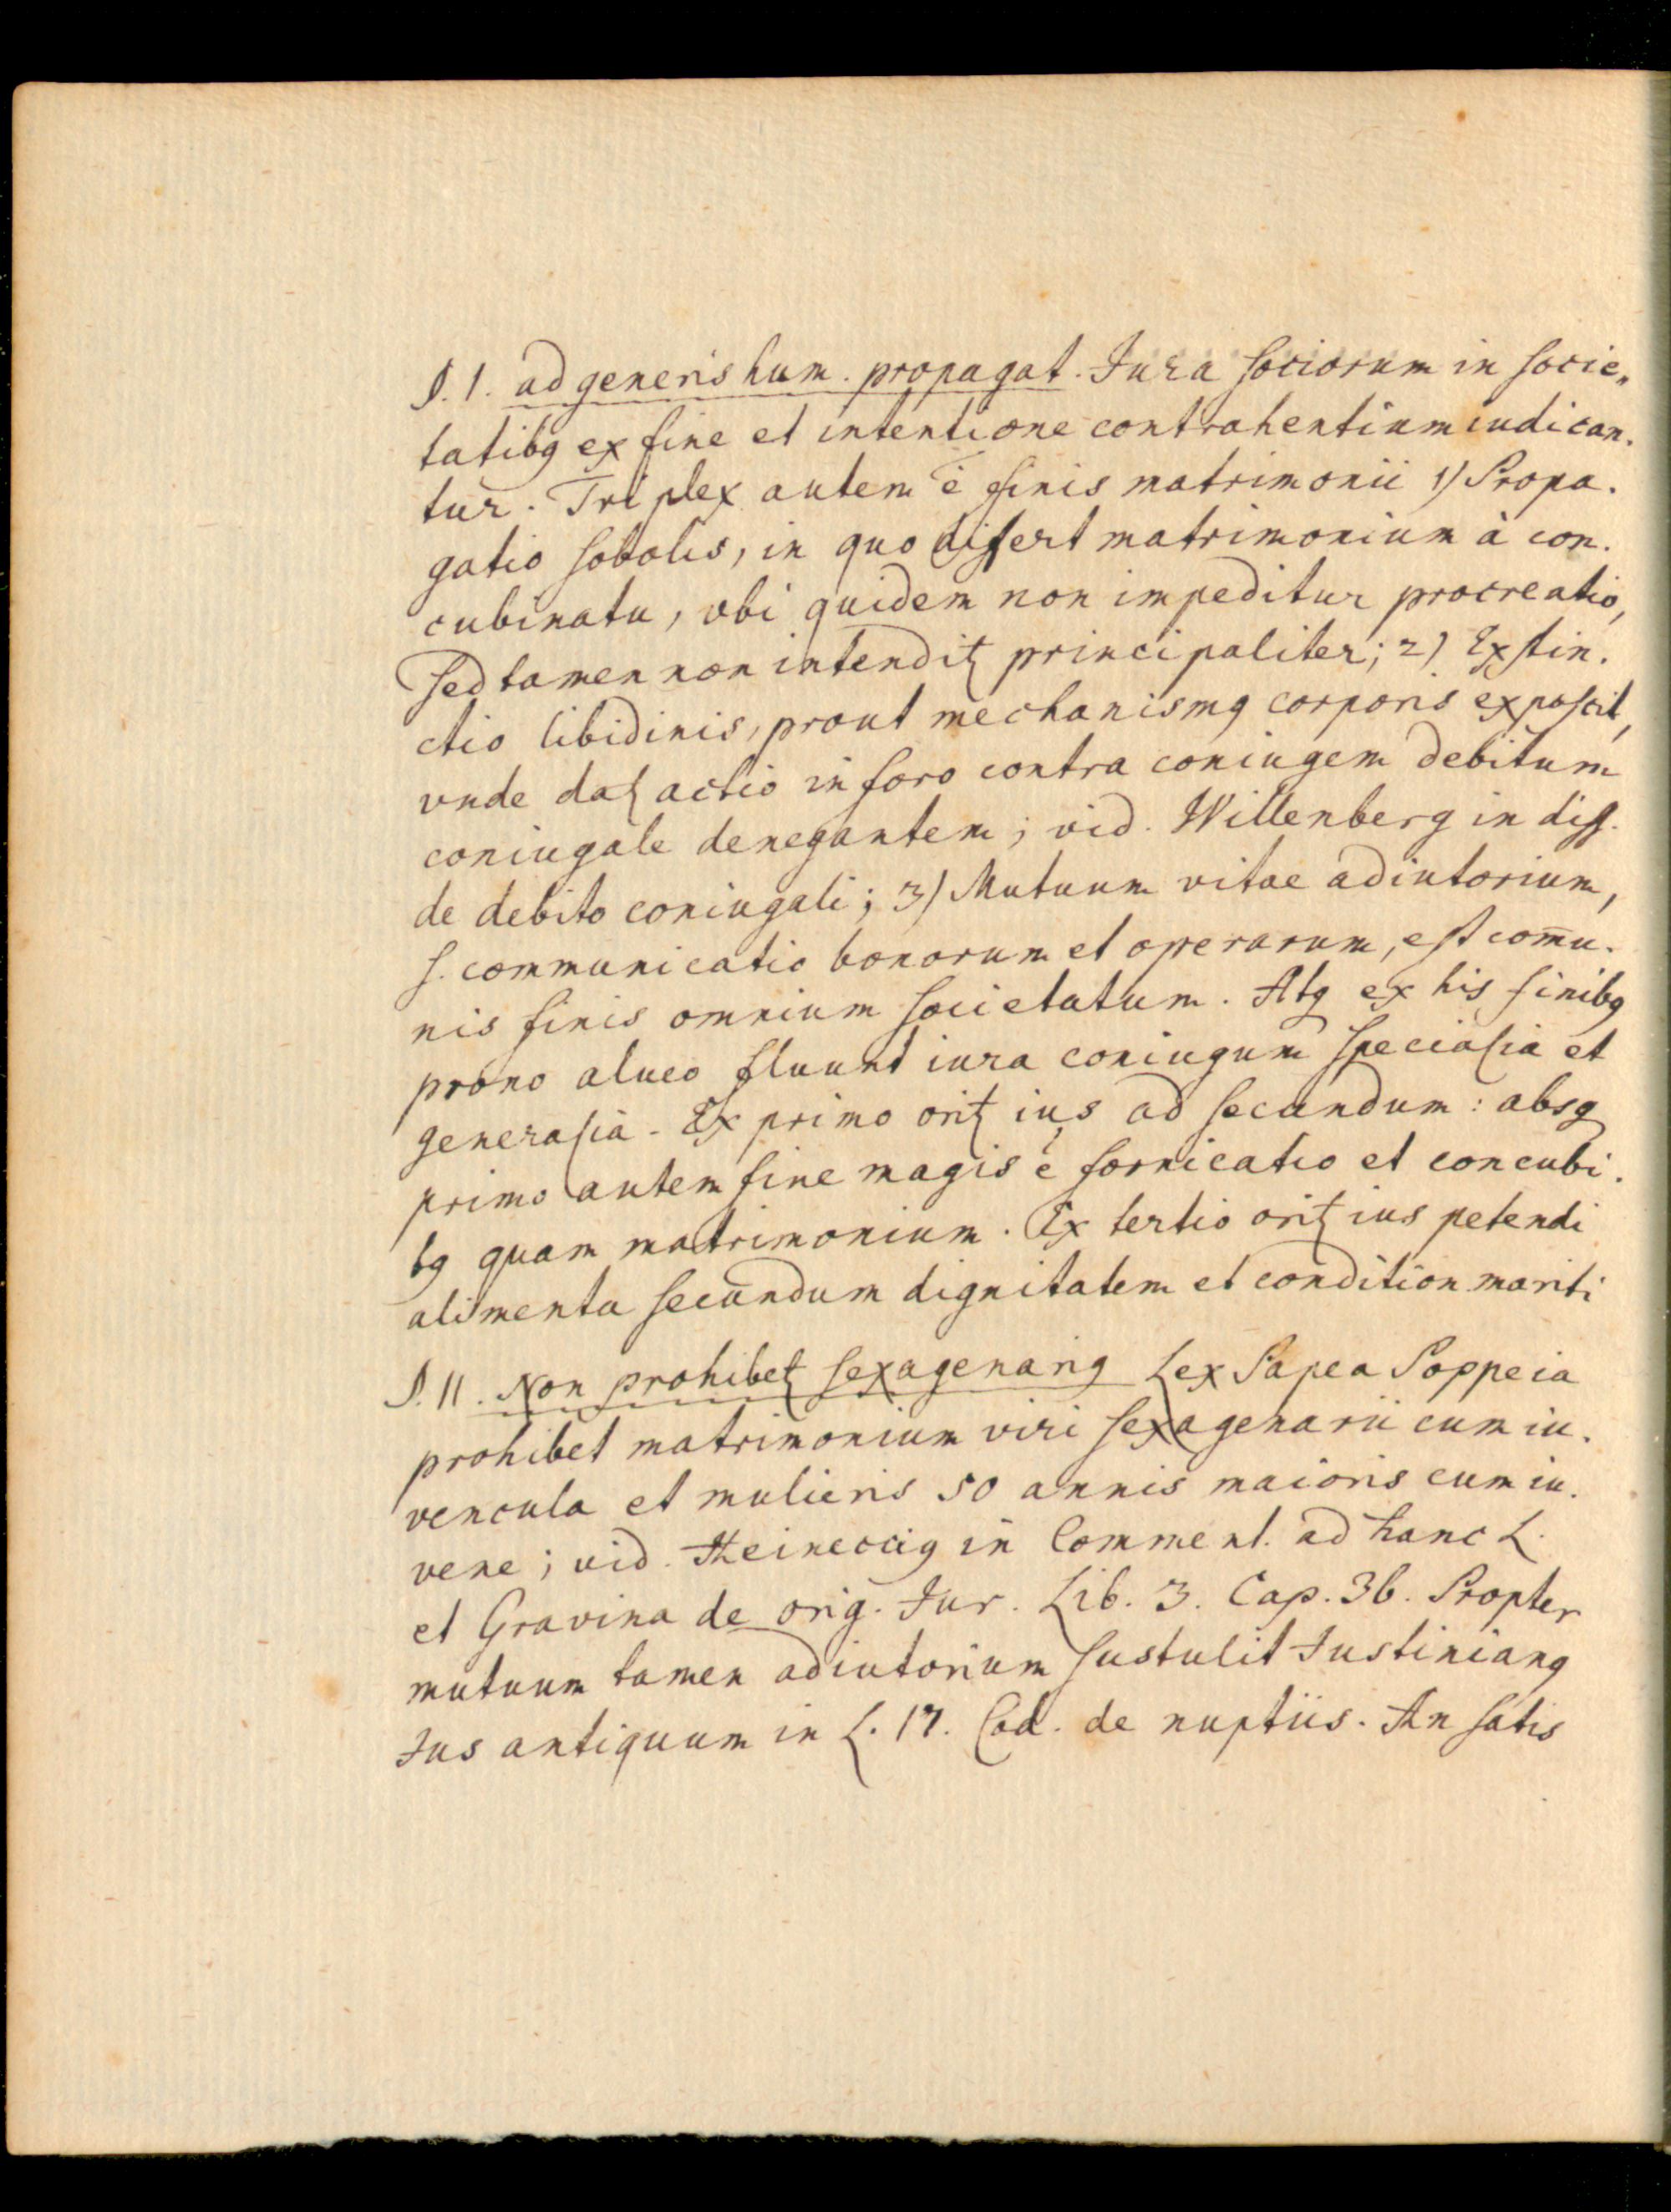 §. 1. ad generis hum. propagat. Jura sociorum in socie„
tatibꝯ ex fine et intentione contrahentium iudican.
tur. Triplex autem ē finis matrimonii 1) Propa.
gatio sobolis, in quo differt matrimonium à con.
cubinatu, vbi quidem non impeditur procreatio,
sed tamen non intendiꝉ principaliter; 2) Exstin.
ctio libidinis, prout mechanismꝯ corporis exposcit,
vnde daꝉ actio in foro contra coniugem debitum
coniugale denegantem; vid. Willenberg in diss.
de debito coniugali; 3) Mutuum vitae adiutorium,
s. communicatio bonorum et operarum, est com̄u.
nis finis omnium societatum. Atq ex his finibꝯ
prono alueo fluunt iura coniugum specialia et
generalia. Ex primo oriꝉ ius ad secundum: absq
primo autem fine magis ē fornicatio et concubi.
tꝯ quam matrimonium. Ex tertio oriꝉ ius petendi
alimenta secundum dignitatem et condition mariti
§. 11. Non prohibeꝉ sexagenariꝯ Lex Papea Poppeia
prohibet matrimonium viri sexagenarii cum iu.
vencula et mulieris 50 annis maioris cum iu.
vene; vid. Heinecciꝯ in Comment. ad hanc L.
et Gravina de orig. Jur. Lib. 3. Cap. 36. Propter
mutuum tamen adiutorium sustulit Justinianꝯ
Jus antiquum in L. 17. Cod. de nuptiis. An satis